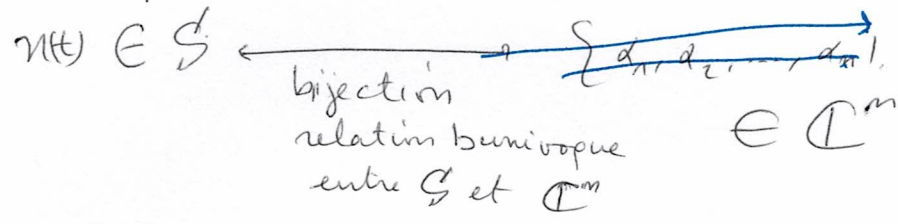 x(t) ∈ S ⟷ {α₁, α₂, ..., αₙ}
bijection ∈ ℂⁿ
relation bunivoque
entre S et ℂⁿ